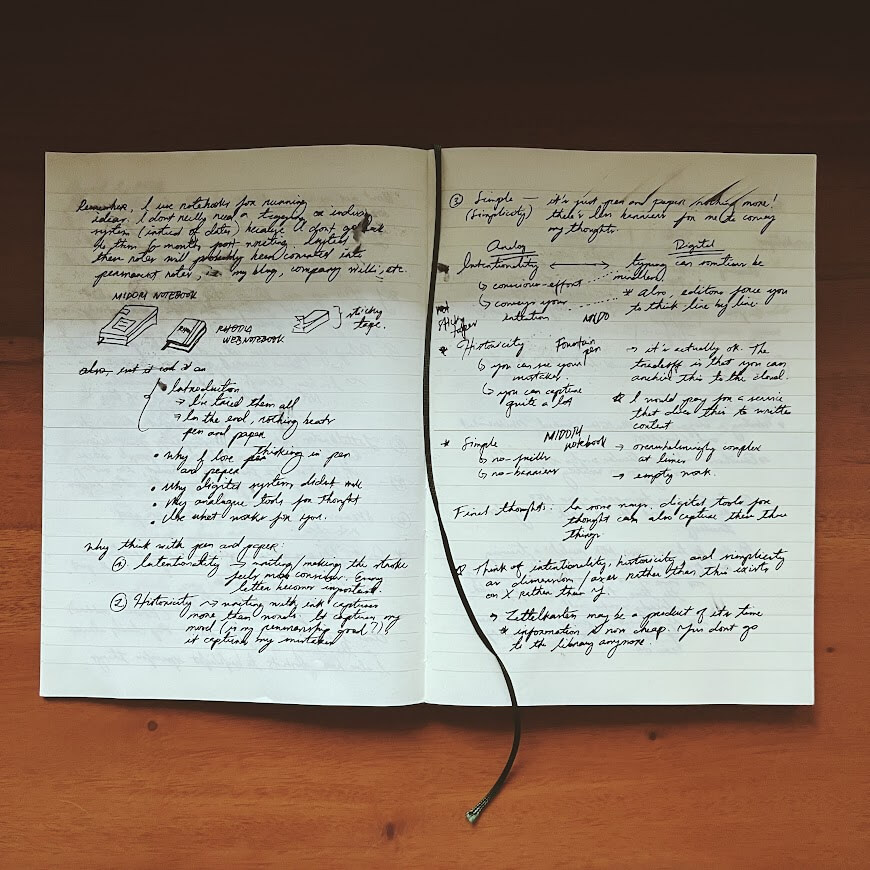 Remember, I use notebooks for running
ideas. I dont really need a tagging or index
system (instead of dates) because I dont go
to them 6 months post-writing. Instead
these notes will probably been converted into
permanent notes, in my blog, company wiki, etc.
MIDORI NOTEBOOK
RHODIA
WEBNOTEBOOK
sticky
tape.
also,
Introduction
→ I've tried them all
→ In the end, nothing beats
pen and paper
• Why I love thinking in pen
and paper
• Why digital systems didnt
• Why analogue tools for thought
• Use what works for you.
Why think with pen and paper:
① Intentionality → writing/making the stroke
feels more Every
letter becomes important.
② Historicity → writing with ink captures
more than words. It captures my
mood (is my penmanship good?),
it captures my mistakes
③ Simple — it's just pen and paper nothing more!
(Simplicity) there's less barriers for me to convey
my thoughts.
Analog Digital
Intentionality ↔ typing can sometimes be
mindless.
↳ conscious effort
↳ conveys your
intention
* also, editors force you
to think line by line.
not
sticky
paper
MILDO
* Historicity
↳ you can see your
mistakes
↳ you can capture
quite a lot
Fountain
pen
→ it's actually ok. The
tradeoff is that you can
anchor this to the cloud.
* I would pay for a service
that does this to written
content
* Simple
↳ no-frills
↳ no-barriers
MIDORI
notebook
→ overwhelmingly complex
at times
→ empty nook.
Final thoughts: In some ways, digital tools for
thought can also capture these three
things
Think of intentionality, historicity, and simplicity
as dimension / axes rather than this exists
on X rather than Y.
→ Zettelkasten may be a product of its time
* information is now cheap. You dont go
to the library anymore.